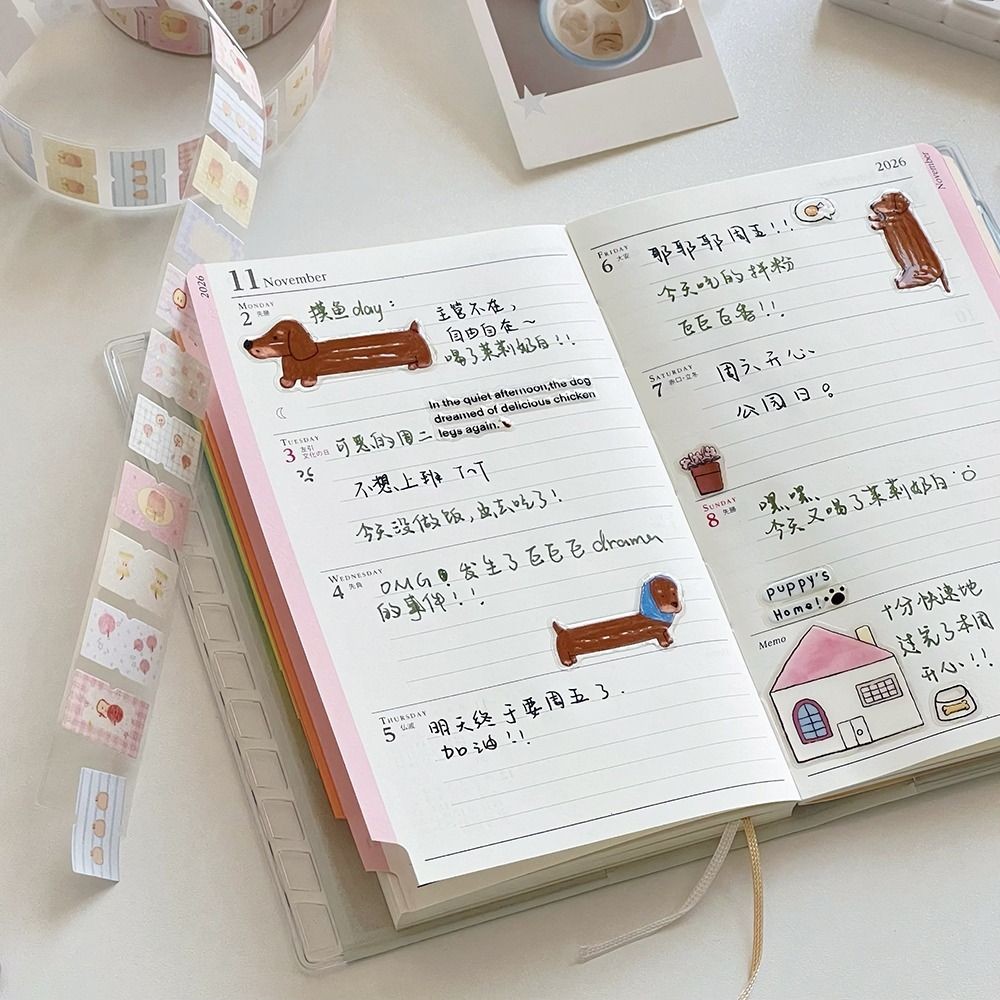 2026
11 November
MONDAY
2 先勝
摸鱼day:
主管不在,
自由自在~
喝了茉莉奶白!!
In the quiet afternoon,the dog
dreamed of delicious chicken
legs again.
TUESDAY
3 友引
文化の日
可恶的周二
不想上班 TnT
今天没做饭,出去吃了!
WEDNESDAY
4 先負
OMG! 发生了巨巨巨 drama
的事件!!
THURSDAY
5 仏滅
明天终于要周五了.
加油!!
2026
November
FRIDAY
6 大安
耶耶耶周五!!
今天吃的拌粉
巨巨巨香!!
SATURDAY
7 赤口·立冬
周六开心、
公园日。
SUNDAY
8 先勝
嘿嘿、
今天又喝了茉莉奶白
puppy's
Home!
Memo
十分快速地
过完了本周
开心!!